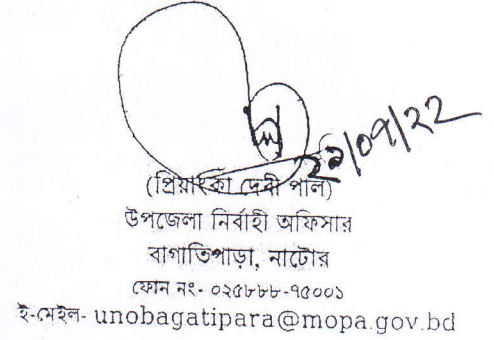 ২১/০৭/২২
(প্রিয়াংকা দেবী পাল)
উপজেলা নির্বাহী অফিসার
বাগাতিপাড়া, নাটোর
ফোন নং- ০২৫৮৮৮-৭৫০০১
ই-মেইল- unobagatipara@mopa.gov.bd